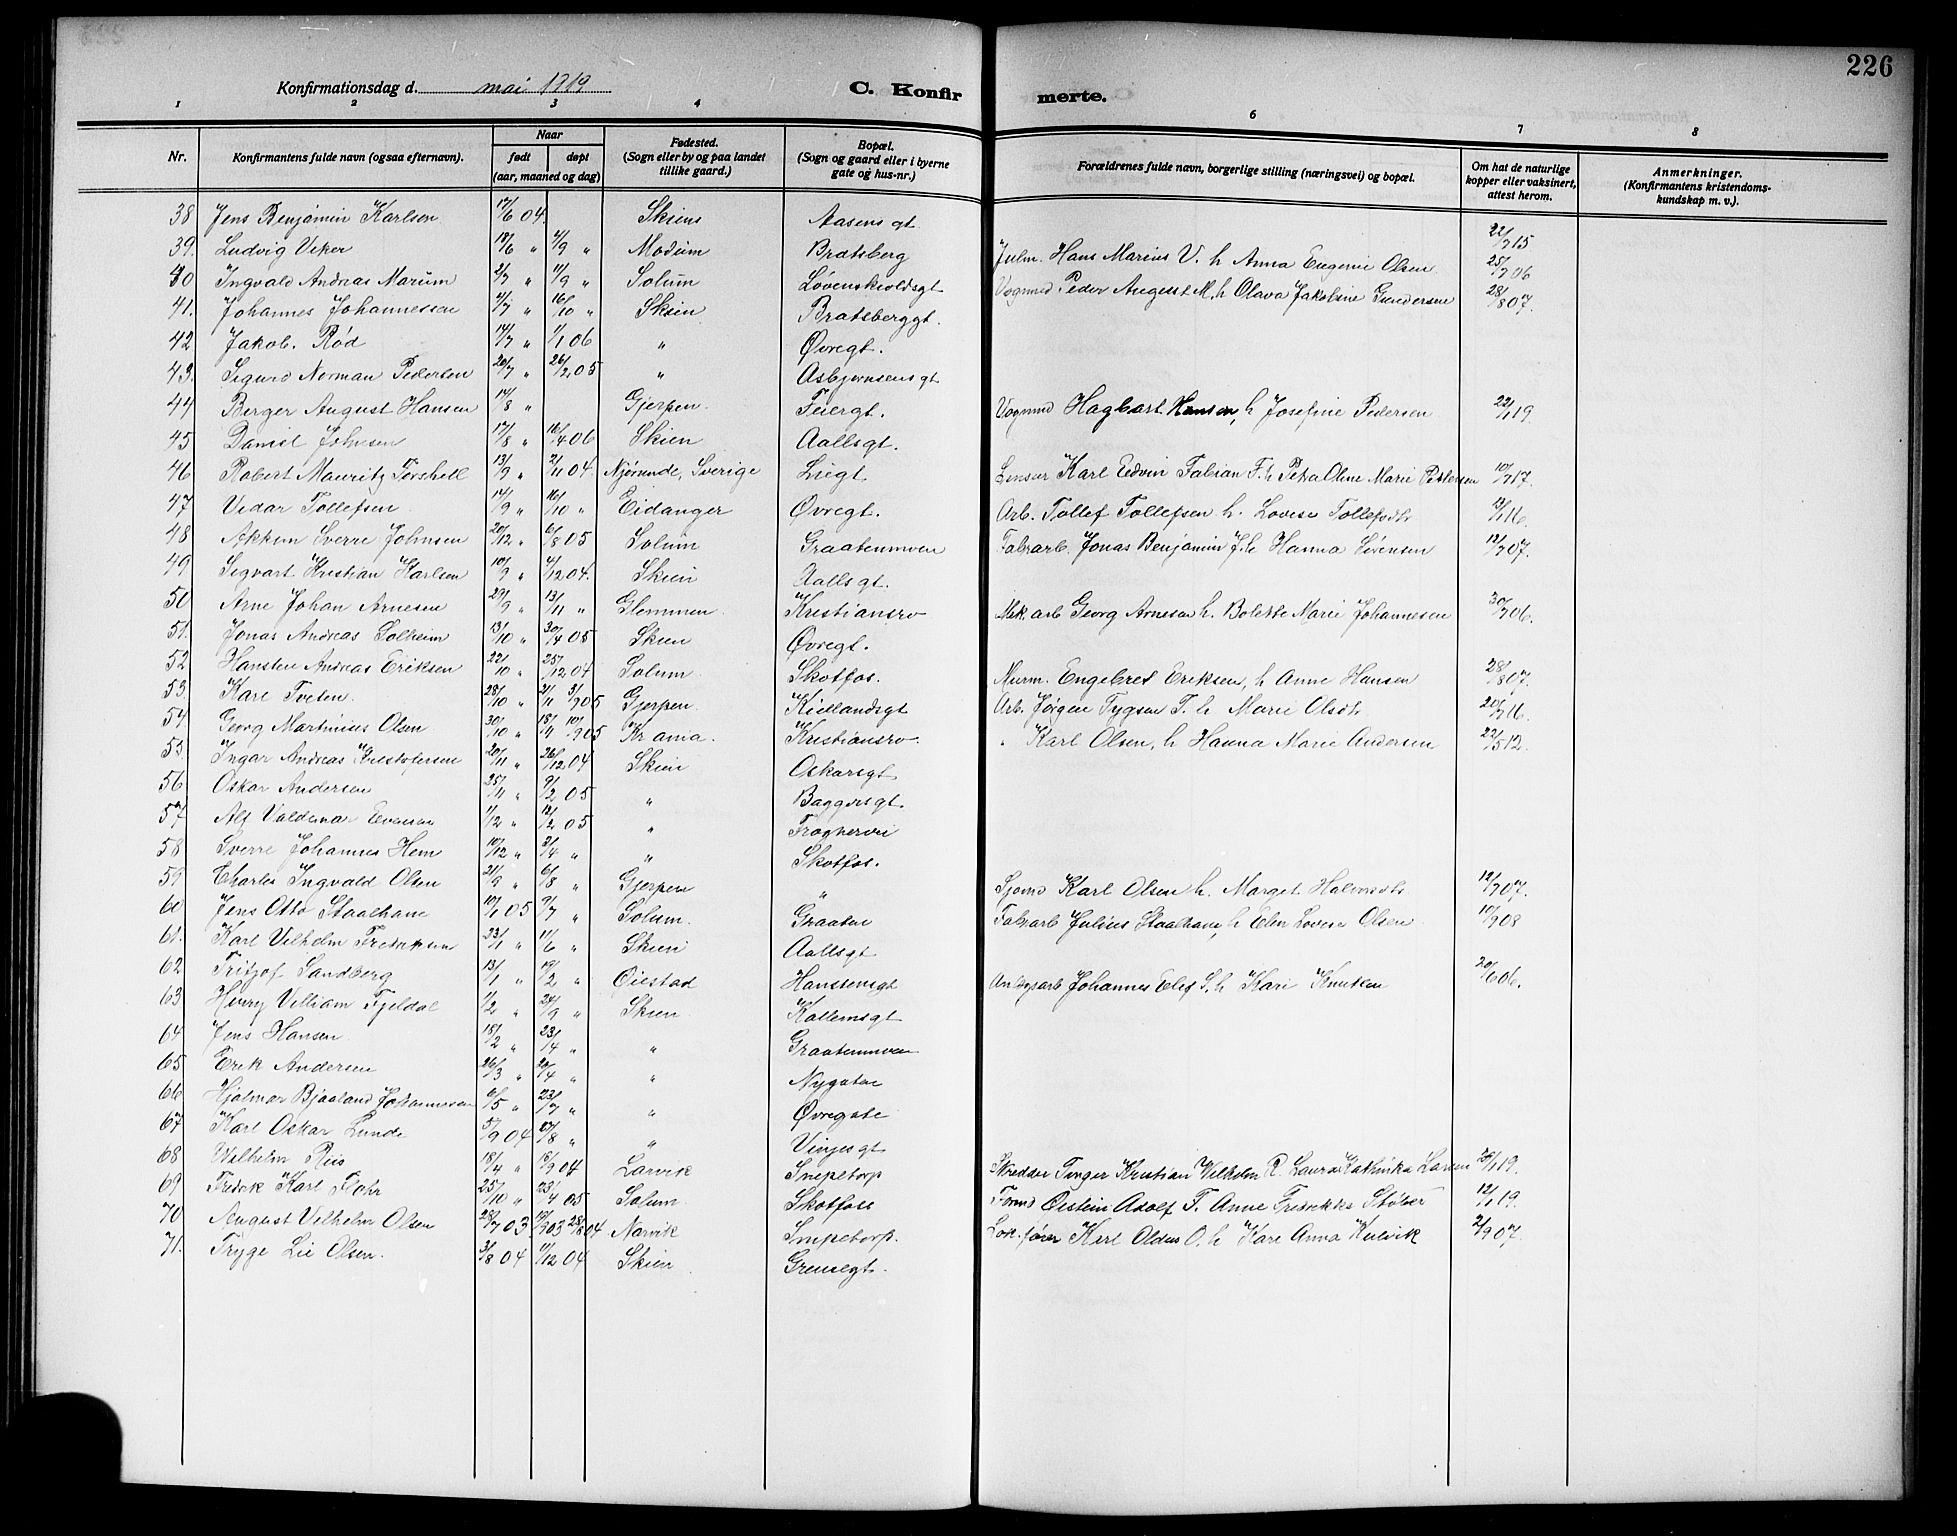 226
Konfirmationsdag d. mai 1919
C. Konfirmerte.
1 2 3 4 6 7 8
Nr. Konfirmantens fulde navn (ogsaa efternavn). Naar født døpt (aar, maaned og dag) Fødested. (Sogn eller by og paa landet tillike gaard.) Bopæl. (Sogn og gaard eller i byerne gate og hus-nr.) Forældrenes fulde navn, borgerlige stilling (næringsvei) og bopæl. Om hat de naturlige kopper eller vaksinert, attest herom. Anmerkninger. (Konfirmantens kristendoms-kundskap m. v.).
38 Jens Benjamin Karlsen 17/6 04. Skiens Aasensgt
39. Ludvig Viker 18/6 " 4/9 " Modum Bratsberg Julm. Hans Marius V. h Anna Eugenie Olsen 22/7 15
40 Ingvald Andreas Marum 2/7 " 11/9 " Solum Løvenskioldsgt Vognmd Peder August M. h Olava Jakobine Gundersen 25/7 06
41. Johannes Johannessen 4/7 " 16/10 " Skien Bratsberggt. 28/8 07.
42 Jakob. Rød 14/7 " 1/1 06 " Øvregt.
43. Sigurd Norman Pedersen 20/7 " 26/2 05 " Asbjørnsensgt
44 Berger August Hansen 14/8 " Gjerpen. Feiergt. Vognmd Hagbart Hansen, h Josefine Pedersen 22/1 19.
45 Daniel Johnsen 17/8 " 16/4 06 Skien Aallsgt.
46 Robert Mauritz Torshell 13/9 " 2/11 04. Njurunde, Sverige Liegt. Karl Edvin Fabian T. h Petra Oline Marie Pettersen 10/7 17.
47 Vidar Tollefsen 14/9 " 16/10 " Eidanger Øvregt. Arb. Tollef Tollefsen h. Lovise Tollefsdtr 13/1 16.
48 Sverre Johnsen 20/12 " 6/8 05 Solum Graatenmoen Fabrarb. Jonas Benjamin J. h Hanna Sørensen 12/7 07.
49 Sigvart Kristian Karlsen 10/9 " 4/12 04. Skien Aallsgt.
50 Arne Johan Arnesen 29/9 " 13/11 " Glemmen Kristiansro Mek. arb Georg Arnesen h. Bolette Marie Johannesen 30/7 06.
51. Jonas Andreas Solheim 13/10 " 30/4 05 Skien Øvregt.
52 Hansten Andreas Eriksen 22/10 " 25/12 04 Solum Skotfos. Murm. Engebret Eriksen, h Anne Hansen 28/8 07.
53 Kare Tveten. 28/10 " 2/11 3/9 05 Gjerpen Kiellandsgt Arb. Jørgen Tygsen T. h Marie Olsdtr 20/7 16.
54 Georg Martinius Olsen 30/10 " 18/11 10/9 05 Kr ania. Kristiansro. " Karl Olsen, h Hanna Marie Andersen 22/5 12.
55. Ingar Andreas Kristofersen 20/11 " 26/12 04 Skien Oskarsgt
56 Oskar Andersen 25/11 " 9/2 05 " Baggersgt.
57 Alf Valdemar Evensen 1/12 " 12/2 05 " Frognervei
58 Sverre Johannes Hem 10/12 " 3/4 " " Skotfos.
59 Charles Ingvald Olsen 21/9 " 6/8 " Gjerpen " Sjømd Karl Olsen h. Marget Halvorsdtr 12/7 07.
60 Jens Otto Staalhane 10/1 05 9/7 " Solum. Graaten Fabrarb Julius Staalhane, h Elen Lovise Olsen 10/9 08
61. Karl Vilhelm Fredriksen 23/1 " 11/6 " Skien Aallsgt
62 Fritjof Sandberg 13/1 " 19/2 " Øiestad Hanssensgt Anlegsarb Johannes Elef S. h Kari Knutsen 20/6 06.
63 Henry Villiam Fjeldal 1/2 " 24/9 " Skien Kallemsgt
64 Jens Hansen 15/2 " 23/4 " " Graatenmoen
65 Erik Andersen 26/3 " 24/4 " " Nygaten
66 Hjalmar Bjaaland Johannesen 6/5 " 23/7 " " Øvregate
67 Karl Oskar Lunde 5/9 04 13/8 " " Vinjesgt
68 Wilhelm Riis 18/4 " 18/9 04 Larvik Snipetorp Skredder Kristian Vilhelm R. Laura Kathinka Larsen 20/1 19.
69 Fredrik Karl Flohr 25/10 " 23/4 05 Solum Skotfoss Formd Øistein Adolf F. Anne Fredrikke Støber 12/1 19.
70 August Vilhelm Olsen 28/7 03 13/9 03 28/8 04 Narvik Snipetorp. Lok. fører Karl Oldus O. h Kare Anna Kulvik 2/9 07.
71. Tryge Lie Olsen. 3/8 04 11/12 04 Skien Grensegt.